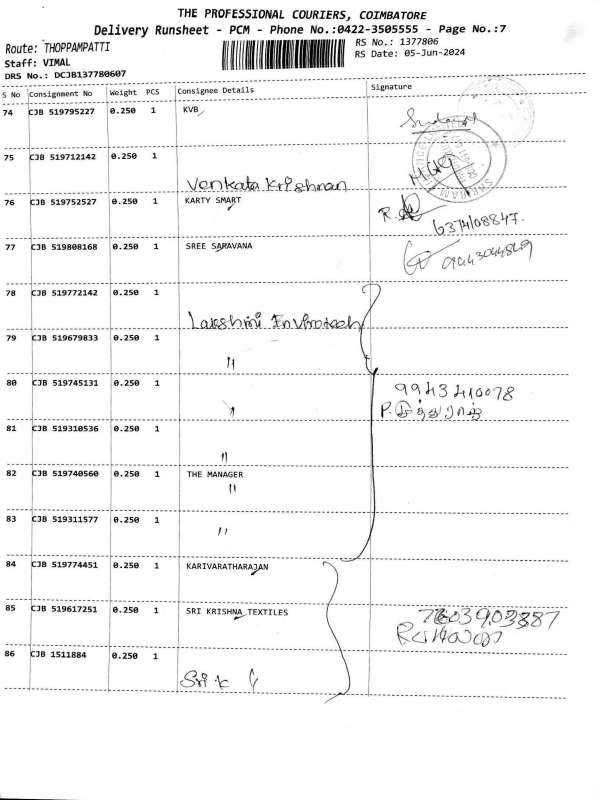 THE PROFESSIONAL COURIERS, COIMBATORE
Delivery Runsheet - PCM - Phone No.:0422-3505555 - Page No.:7
Route: THOPPAMPATTI
RS No.: 1377806
Staff: VIMAL
RS Date: 05-Jun-2024
DRS No.: DCJB137780607
S No Consignment No Weight PCS Consignee Details Signature
74 CJB 519795227 0.250 1 KVB
75 CJB 519712142 0.250 1
Venkata Krishnan
76 CJB 519752527 0.250 1 KARTY SMART
6374108847.
77 CJB 519808168 0.250 1 SREE SARAVANA
78 CJB 519772142 0.250 1
Lakshmi Envirotech
79 CJB 519679833 0.250 1
"
80 CJB 519745131 0.250 1
9943410078
"
81 CJB 519310536 0.250 1
"
82 CJB 519740560 0.250 1 THE MANAGER
"
83 CJB 519311577 0.250 1
"
84 CJB 519774451 0.250 1 KARIVARATHARAJAN
85 CJB 519617251 0.250 1 SRI KRISHNA TEXTILES
86 CJB 1511884 0.250 1
Sri K